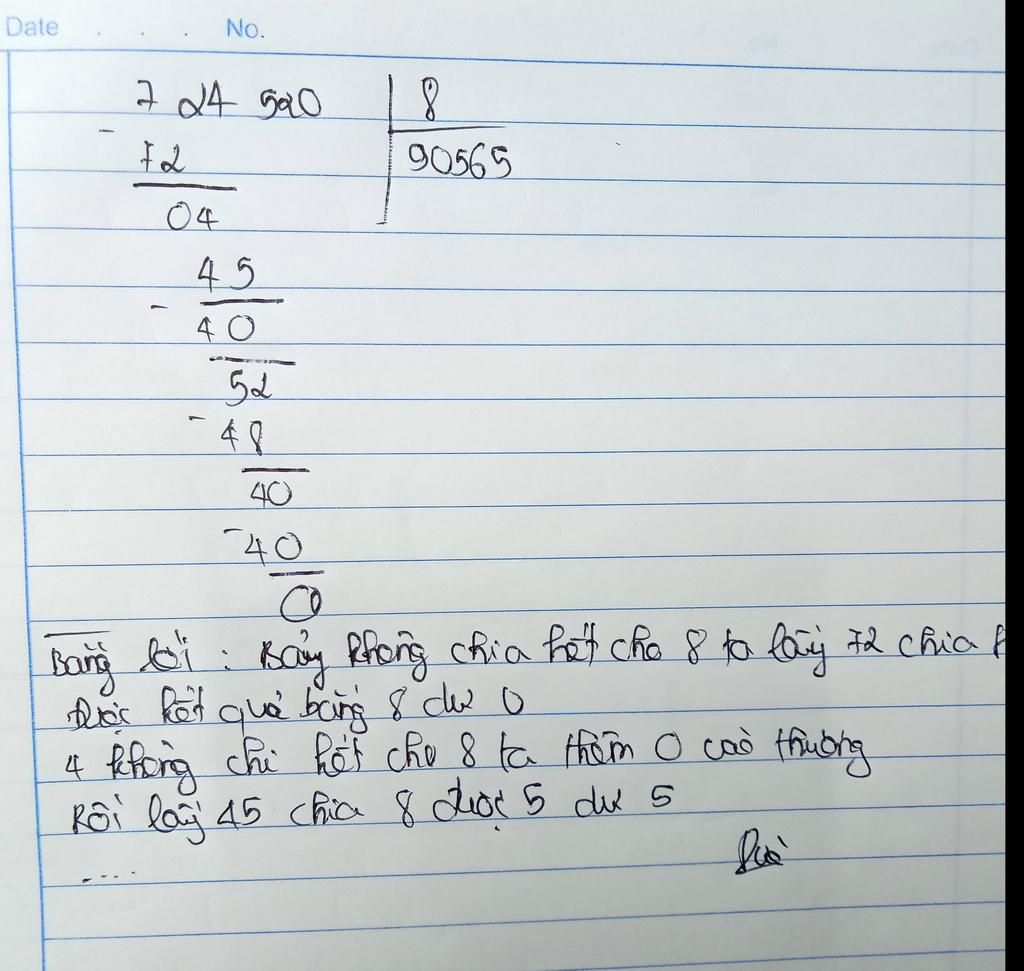 Date . . . No.
7 24 520 8
- 72 90565
04
45
- 40
52
- 48
40
- 40
0
Bằng lời : Bảy không chia hết cho 8 ta lấy 72 chia
Được kết quả bằng 8 dư 0
4 không chi hết cho 8 ta thêm 0 cào thương
Rồi lấy 45 chia 8 được 5 dư 5
....